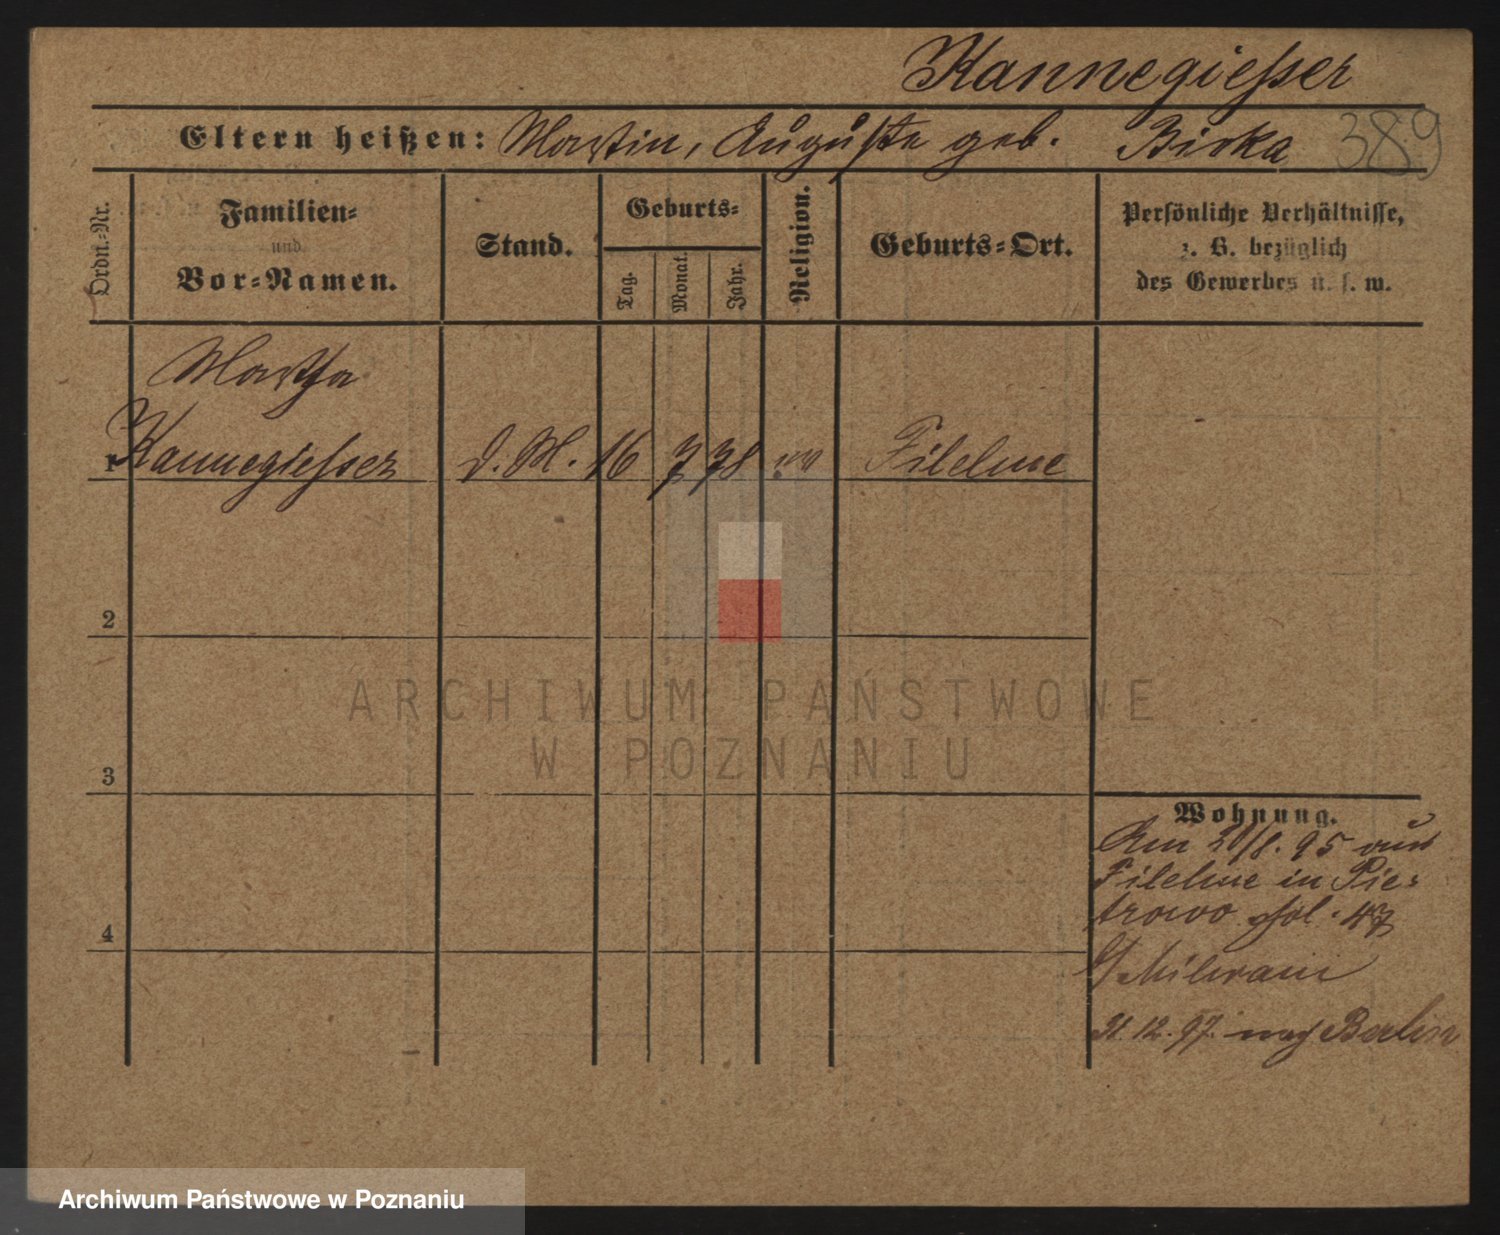 Kannegiesser
Eltern heißen: Martin, Auguste geb. Birka 389
Ordn.-Nr.
Familien-
und
Vor-Namen.
Stand.
Geburts-
Tag.
Monat.
Jahr.
Religion.
Geburts-Ort.
Persönliche Verhältnisse,
z. B. bezüglich
des Gewerbes u. s. w.
Martha
1 Kannegiesser D. M. 16 7 78 Filehne
2
3
4
Wohnung.
Am 20/8. 95 aus
Filehne in Pie-
trowo Pol. 47
31.12.97 nach Berlin
ARCHIWUM PAŃSTWOWE
W POZNANIU
Archiwum Państwowe w Poznaniu